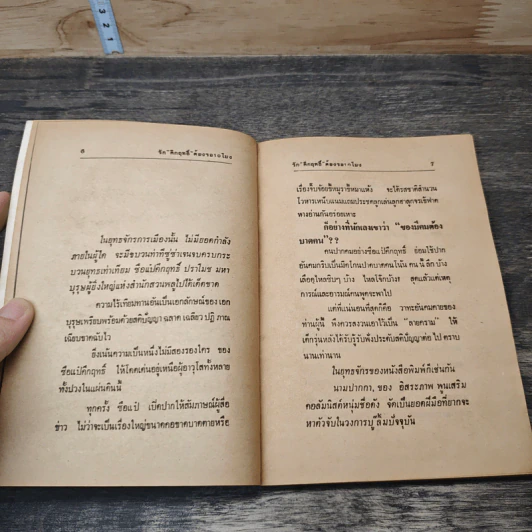 3
2
1
6
รัก"คึกฤทธิ์"ต้องขยาดโมง
ในยุทธจักรการเมืองนั้น ไม่มียอดกำลัง
ภายในผู้ใด จะมีขบวนท่าที่ชู่ซ่าเจนจบครบกระ
บวนยุทธเท่าเทียม ซือแป๋คึกฤทธิ์ ปราโมช มหา
บุรุษผู้ยิ่งใหญ่แห่งสำนักสวนพลูไปได้เด็ดขาด
ความไร้เทียมทานอันเป็นเอกลักษณ์ของ เอก
บุรุษเพรียบพร้อมด้วยสติปัญญา ฉลาด เฉลียว ปฏิ ภาณ
เฉียบขาดฉับไว
ยิ่งเน้นความเป็นหนึ่งไม่มีสองรองใคร ของ
ซือแป๋คึกฤทธิ์ ให้โดดเด่นอยู่เหนือผู้อาวุโสทั้งหลาย
ทั้งปวงในแผ่นดินนี้
ทุกครั้ง ซือแป๋ เปิดปากให้สัมภาษณ์ผู้สื่อ
ข่าว ไม่ว่าจะเป็นเรื่องใหญ่ขนาดคอขาดบาดตายหรือ
รัก"คึกฤทธิ์"ต้องขยาดโมง
7
เรื่องจิ๊บจ๊อยขี้หมูราขี้หมาแห้ง จะได้รสชาติสำนวน
โวหารเหน็บแนมแถมประชดลูกเล่นลูกฮาลูกจรเข้ฟาด
หางอ่านกันอร่อยเหาะ
ก็อย่างที่นักเลงเขาว่า "ของมีคมต้อง
บาดคน"??
คนปากคมอย่างซือแป๋คึกฤทธิ์ ย่อมใช้ปาก
อันคมกริบเป็นมีดโกนปาดบาดคนโน้น คน นี้ ลึก บ้าง
เลือดไหลซิบๆ บ้าง ไหลโจ๊กบ้าง! สุดแล้วแต่เหตุ
การณ์และอารมณ์คนพูดจะพาไป
แต่ที่แน่นอนที่สุดก็คือ วาทะอันคมคายของ
ท่านผู้นี้ พึงควรสงวนเอาไว้เป็น "ลายคราม" ให้
เด็กรุ่นหลังได้รับรู้รับฟังประดับสติปัญญาต่อ ไป ตราบ
นานเท่านาน
ในยุทธจักรของหนังสือพิมพ์ก็เช่นกัน
นามปากกา, ของ อิสระภาพ พูนเสริม
คอลัมนิสต์หนุ่มชื่อดัง จัดเป็นยอดฝีมือที่ยากจะ
หาตัวจับในวงการบู๊ลิ้มปัจจุบัน